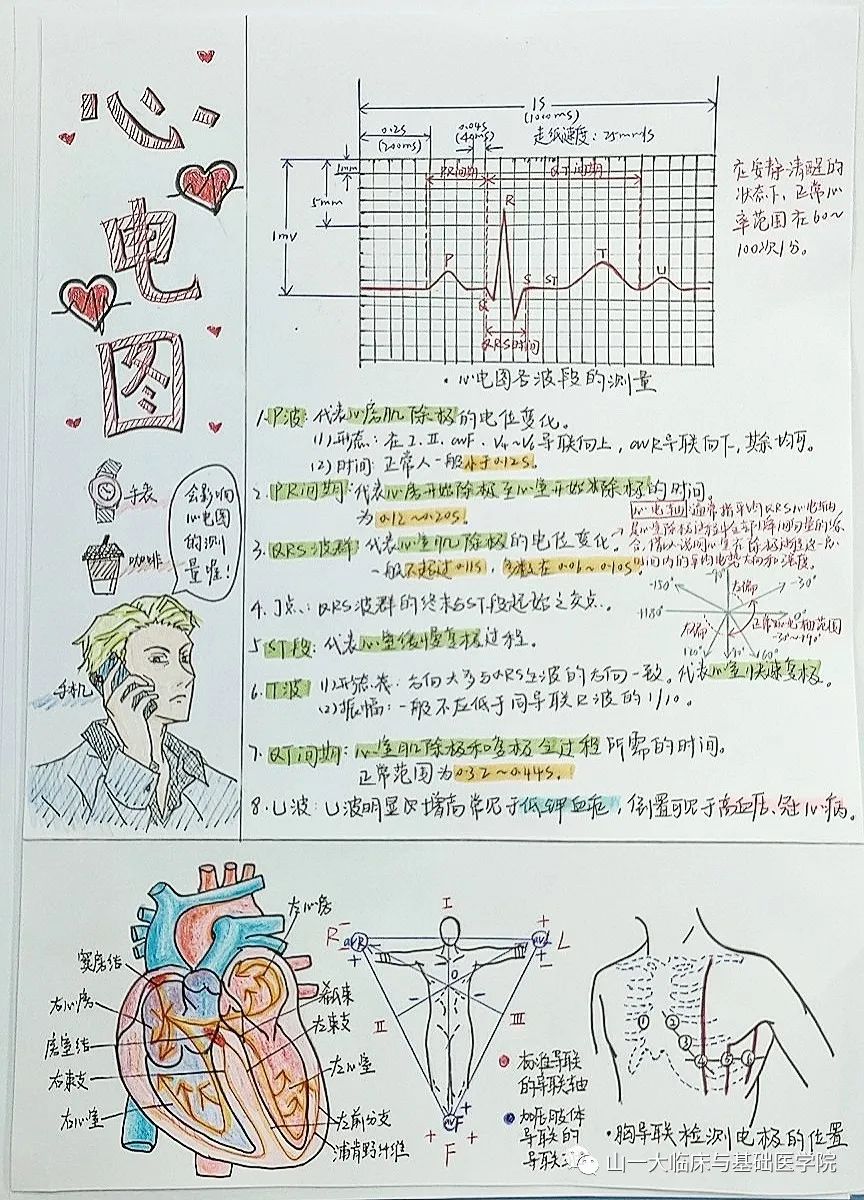 心电图
手表
咖啡
手机
会影响
心电图
的测
量喔！
1s
(1000ms)
0.2s
(200ms)
0.04s
(40ms)
走纸速度：25mm/s
1mm
5mm
1mv
PR间期
QT间期
R
P
Q
S
ST
T
U
QRS时间
在安静清醒的
状态下，正常心
率范围在60～
100次/分。
·心电图各波段的测量
1.P波：代表心房肌除极的电位变化。
(1)形态：在I、II、avF、V4～V6导联向上，avR导联向下，其余均可。
(2)时间：正常人一般小于0.12s。
2.PR间期：代表心房开始除极至心室开始除极的时间。
为0.12～0.20s。
3.QRS波群：代表心室肌除极的电位变化。
一般不超过0.11s，多数在0.06～0.10s。
心电轴：通常指平均QRS心电轴
4.J点：QRS波群的终末与ST段起始之交点。
5.ST段：代表心室缓慢复极过程。
6.T波 (1)形态：方向大多与QRS主波的方向一致。代表心室快速复极。
(2)振幅：一般不应低于同导联R波的1/10。
7.QT间期：心室肌除极和复极全过程所需的时间。
正常范围为0.32～0.44s。
8.U波：U波明显增高常见于低钾血症，倒置可见于高血压、冠心病。
-150°
-90°
-30°
±180°
0°
左偏
右偏
正常心电轴范围
-30°～+90°
左心房
窦房结
右心房
房室结
右束支
右心室
希氏束
左束支
左心室
左前分支
浦肯野纤维
I
R
avR
avL
L
II
III
avF
F
标准导联
的导联轴
加压肢体
导联的
导联轴
① ② ③ ④ ⑤ ⑥
·胸导联检测电极的位置
山一大临床与基础医学院